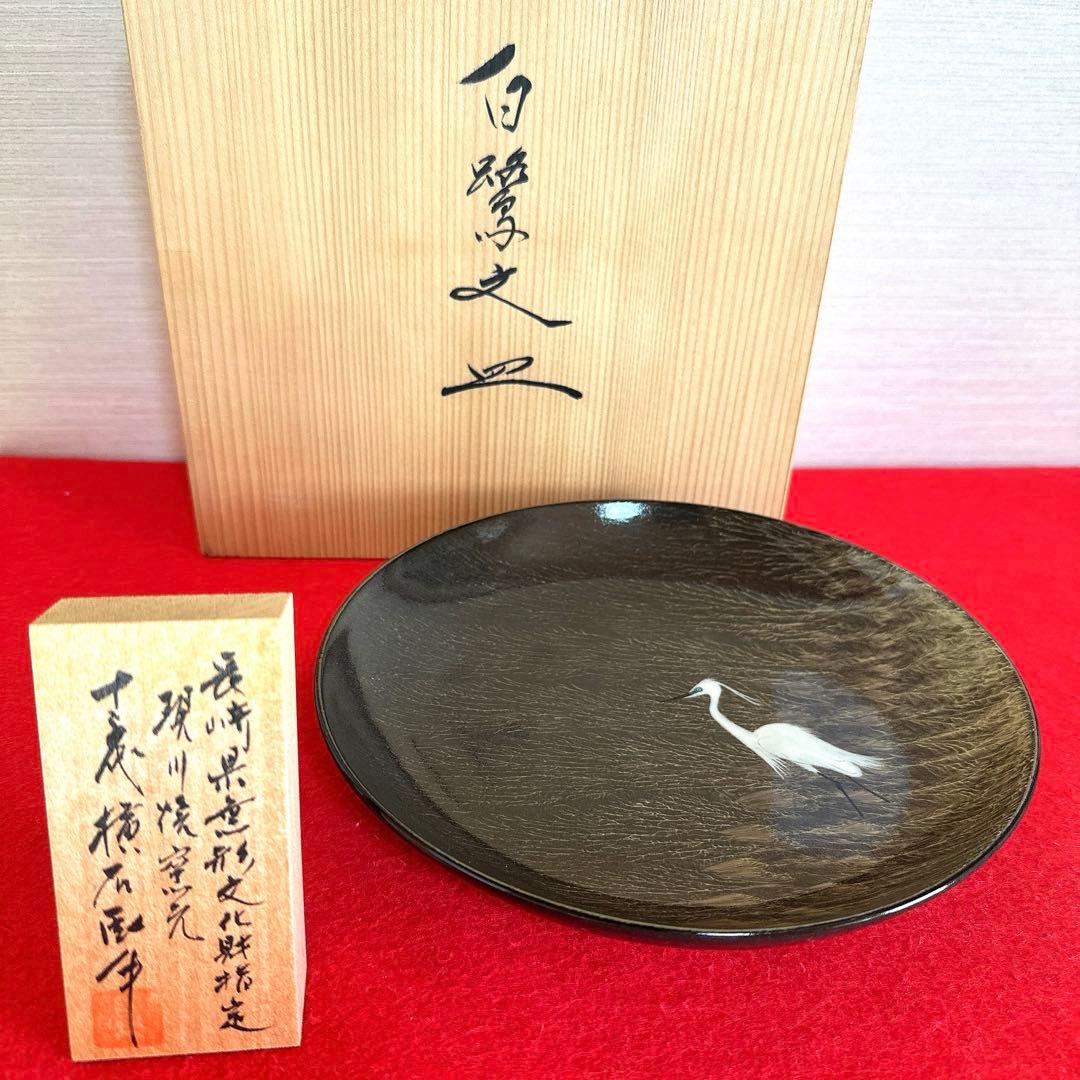 白鷺文皿
長崎県無形文化財指定
現川焼窯元
十三歳 横石臥牛